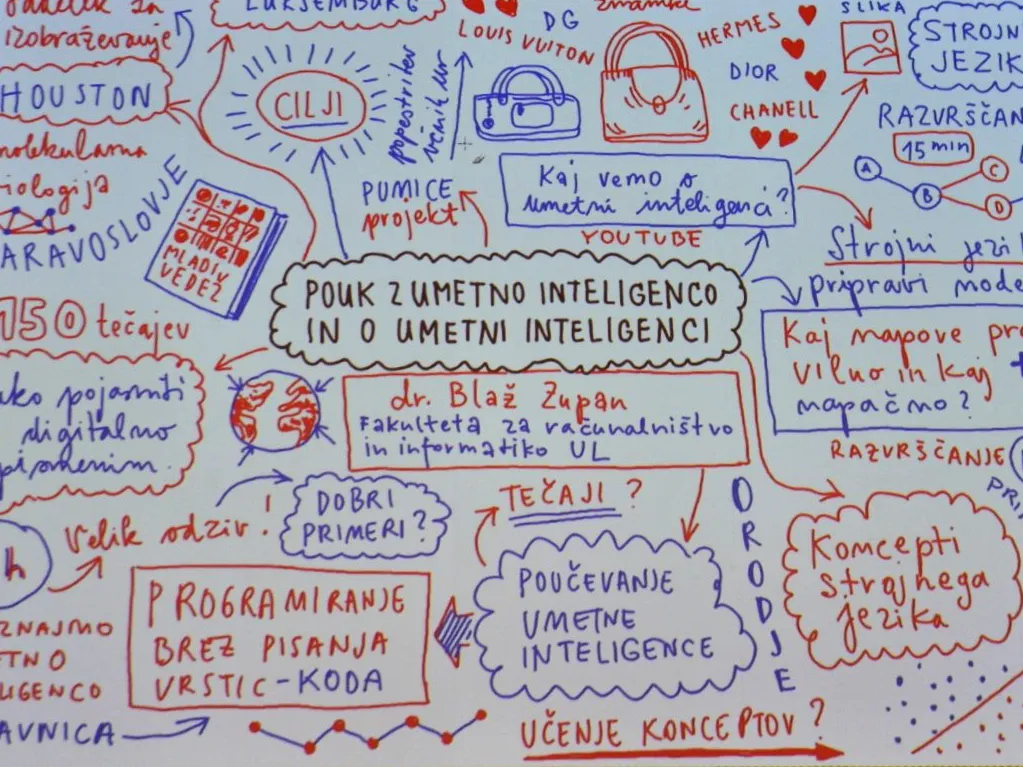 LUKSEMBURG
izobraževanje
HOUSTON
CILJI
popestritev
učnih ur
DG
LOUIS VUITON
HERMES
DIOR
CHANELL
SLIKA
STROJN
JEZIK
RAZVRŠČAN
15 min
A
B
C
D
molekularna
iologija
ARAVOSLOVJE
MLADIV
VEDEŽ
PUMICE
projekt
Kaj vemo o
umetni inteligenci?
YOUTUBE
Strojni jezi
pripravi mode
POUK Z UMETNO INTELIGENCO
IN O UMETNI INTELIGENCI
150 tečajev
ako pojasniti
digitalno
pismenim.
dr. Blaž Zupan
Fakulteta za računalništvo
in informatiko UL
Kaj mapove pra
vilno in kaj
napačno?
RAZVRŠČANJE
Velik odziv!
DOBRI
PRIMERI?
TEČAJI?
ORODJE
POUČEVANJE
UMETNE
INTELIGENCE
Koncepti
strojnega
jezika
h
ZNAJMO
ETNO
LIGENCO
AVNICA
PROGRAMIRANJE
BREZ PISANJA
VRSTIC-KODA
UČENJE KONCEPTOV?